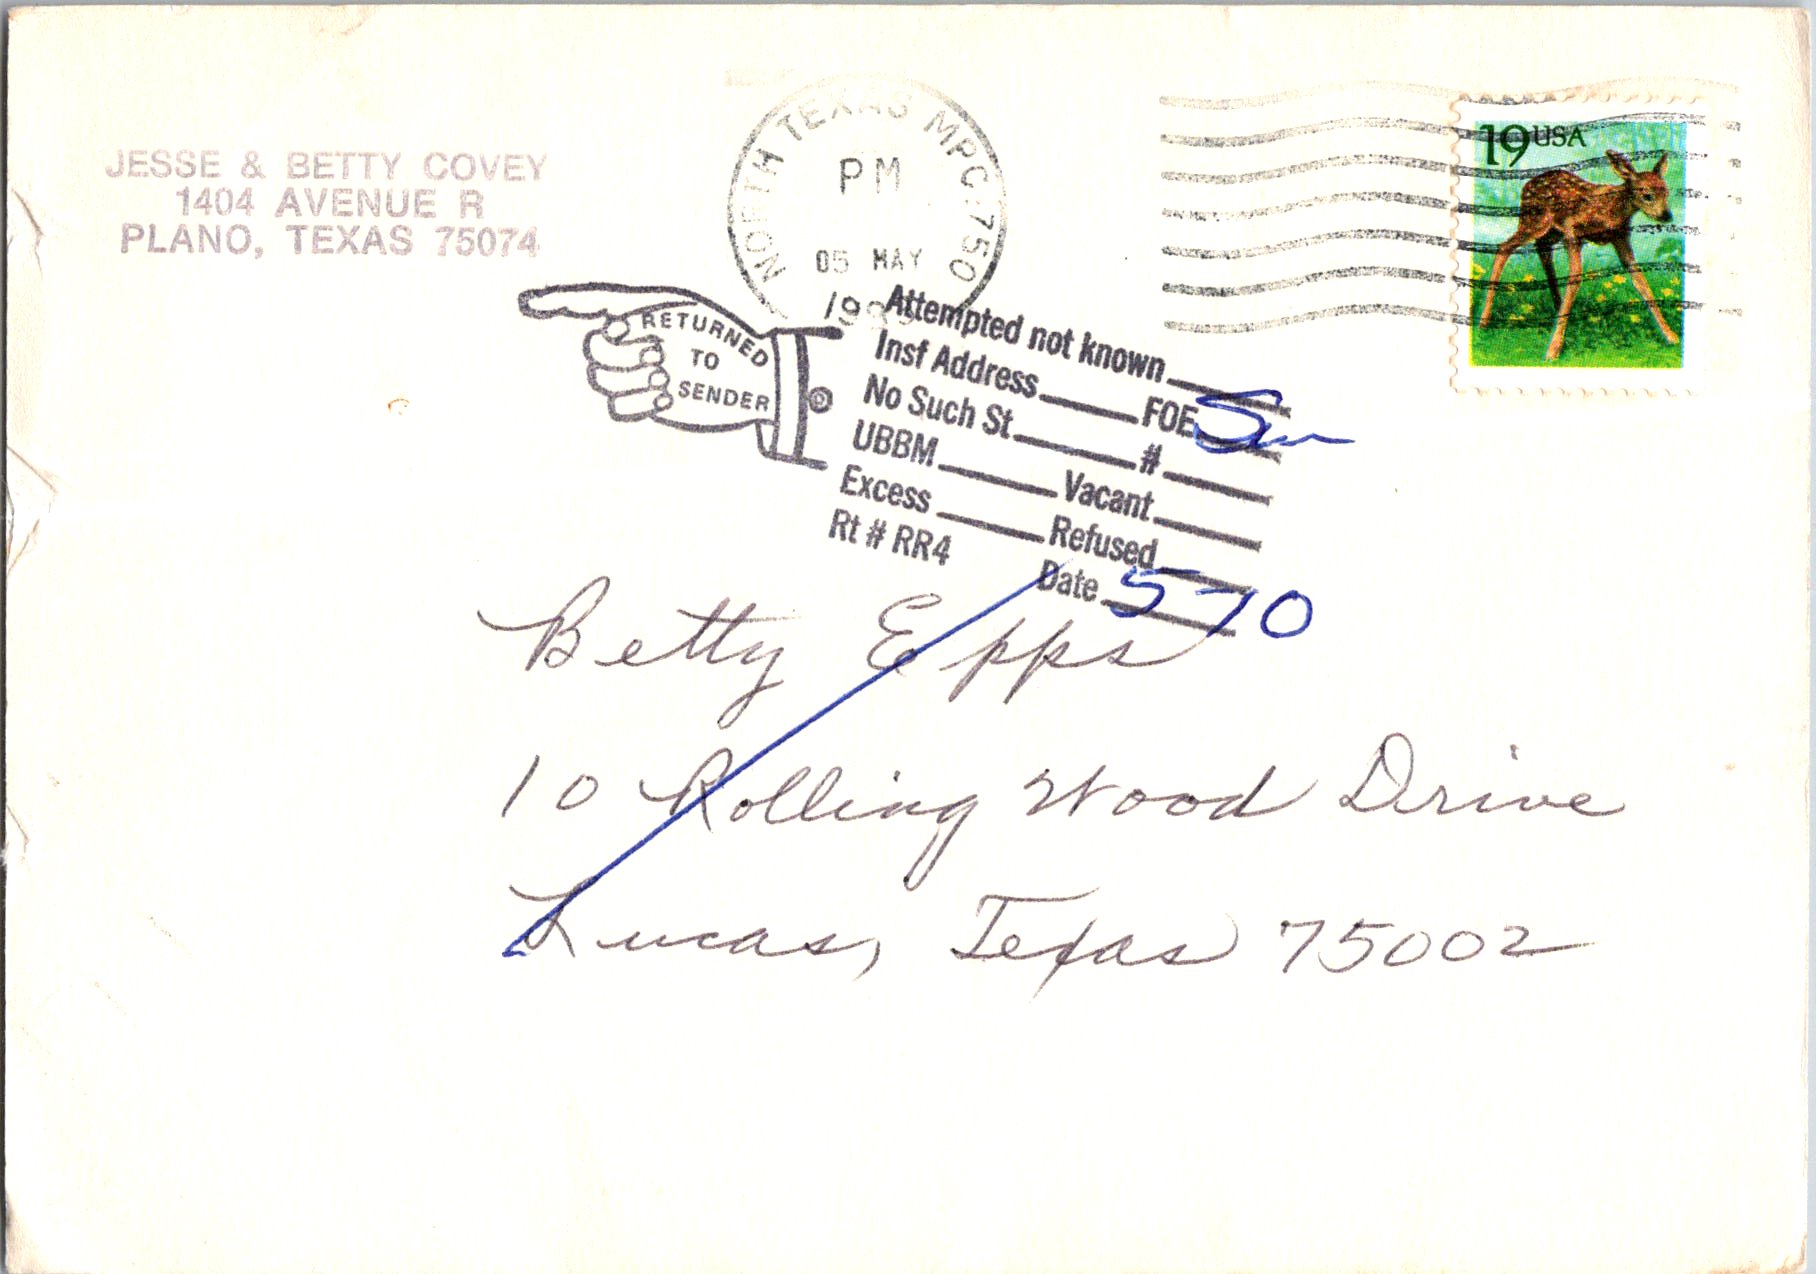 JESSE & BETTY COVEY
1404 AVENUE R
PLANO, TEXAS 75074
NORTH TEXAS MPC 750
PM
05 MAY
19USA
RETURNED
TO
SENDER
Attempted not known
Insf Address FOE
No Such St #
UBBM Vacant
Excess Refused
Rt # RR4 Date 5-10
Betty Epps
10 Rolling Wood Drive
Lucas, Texas 75002